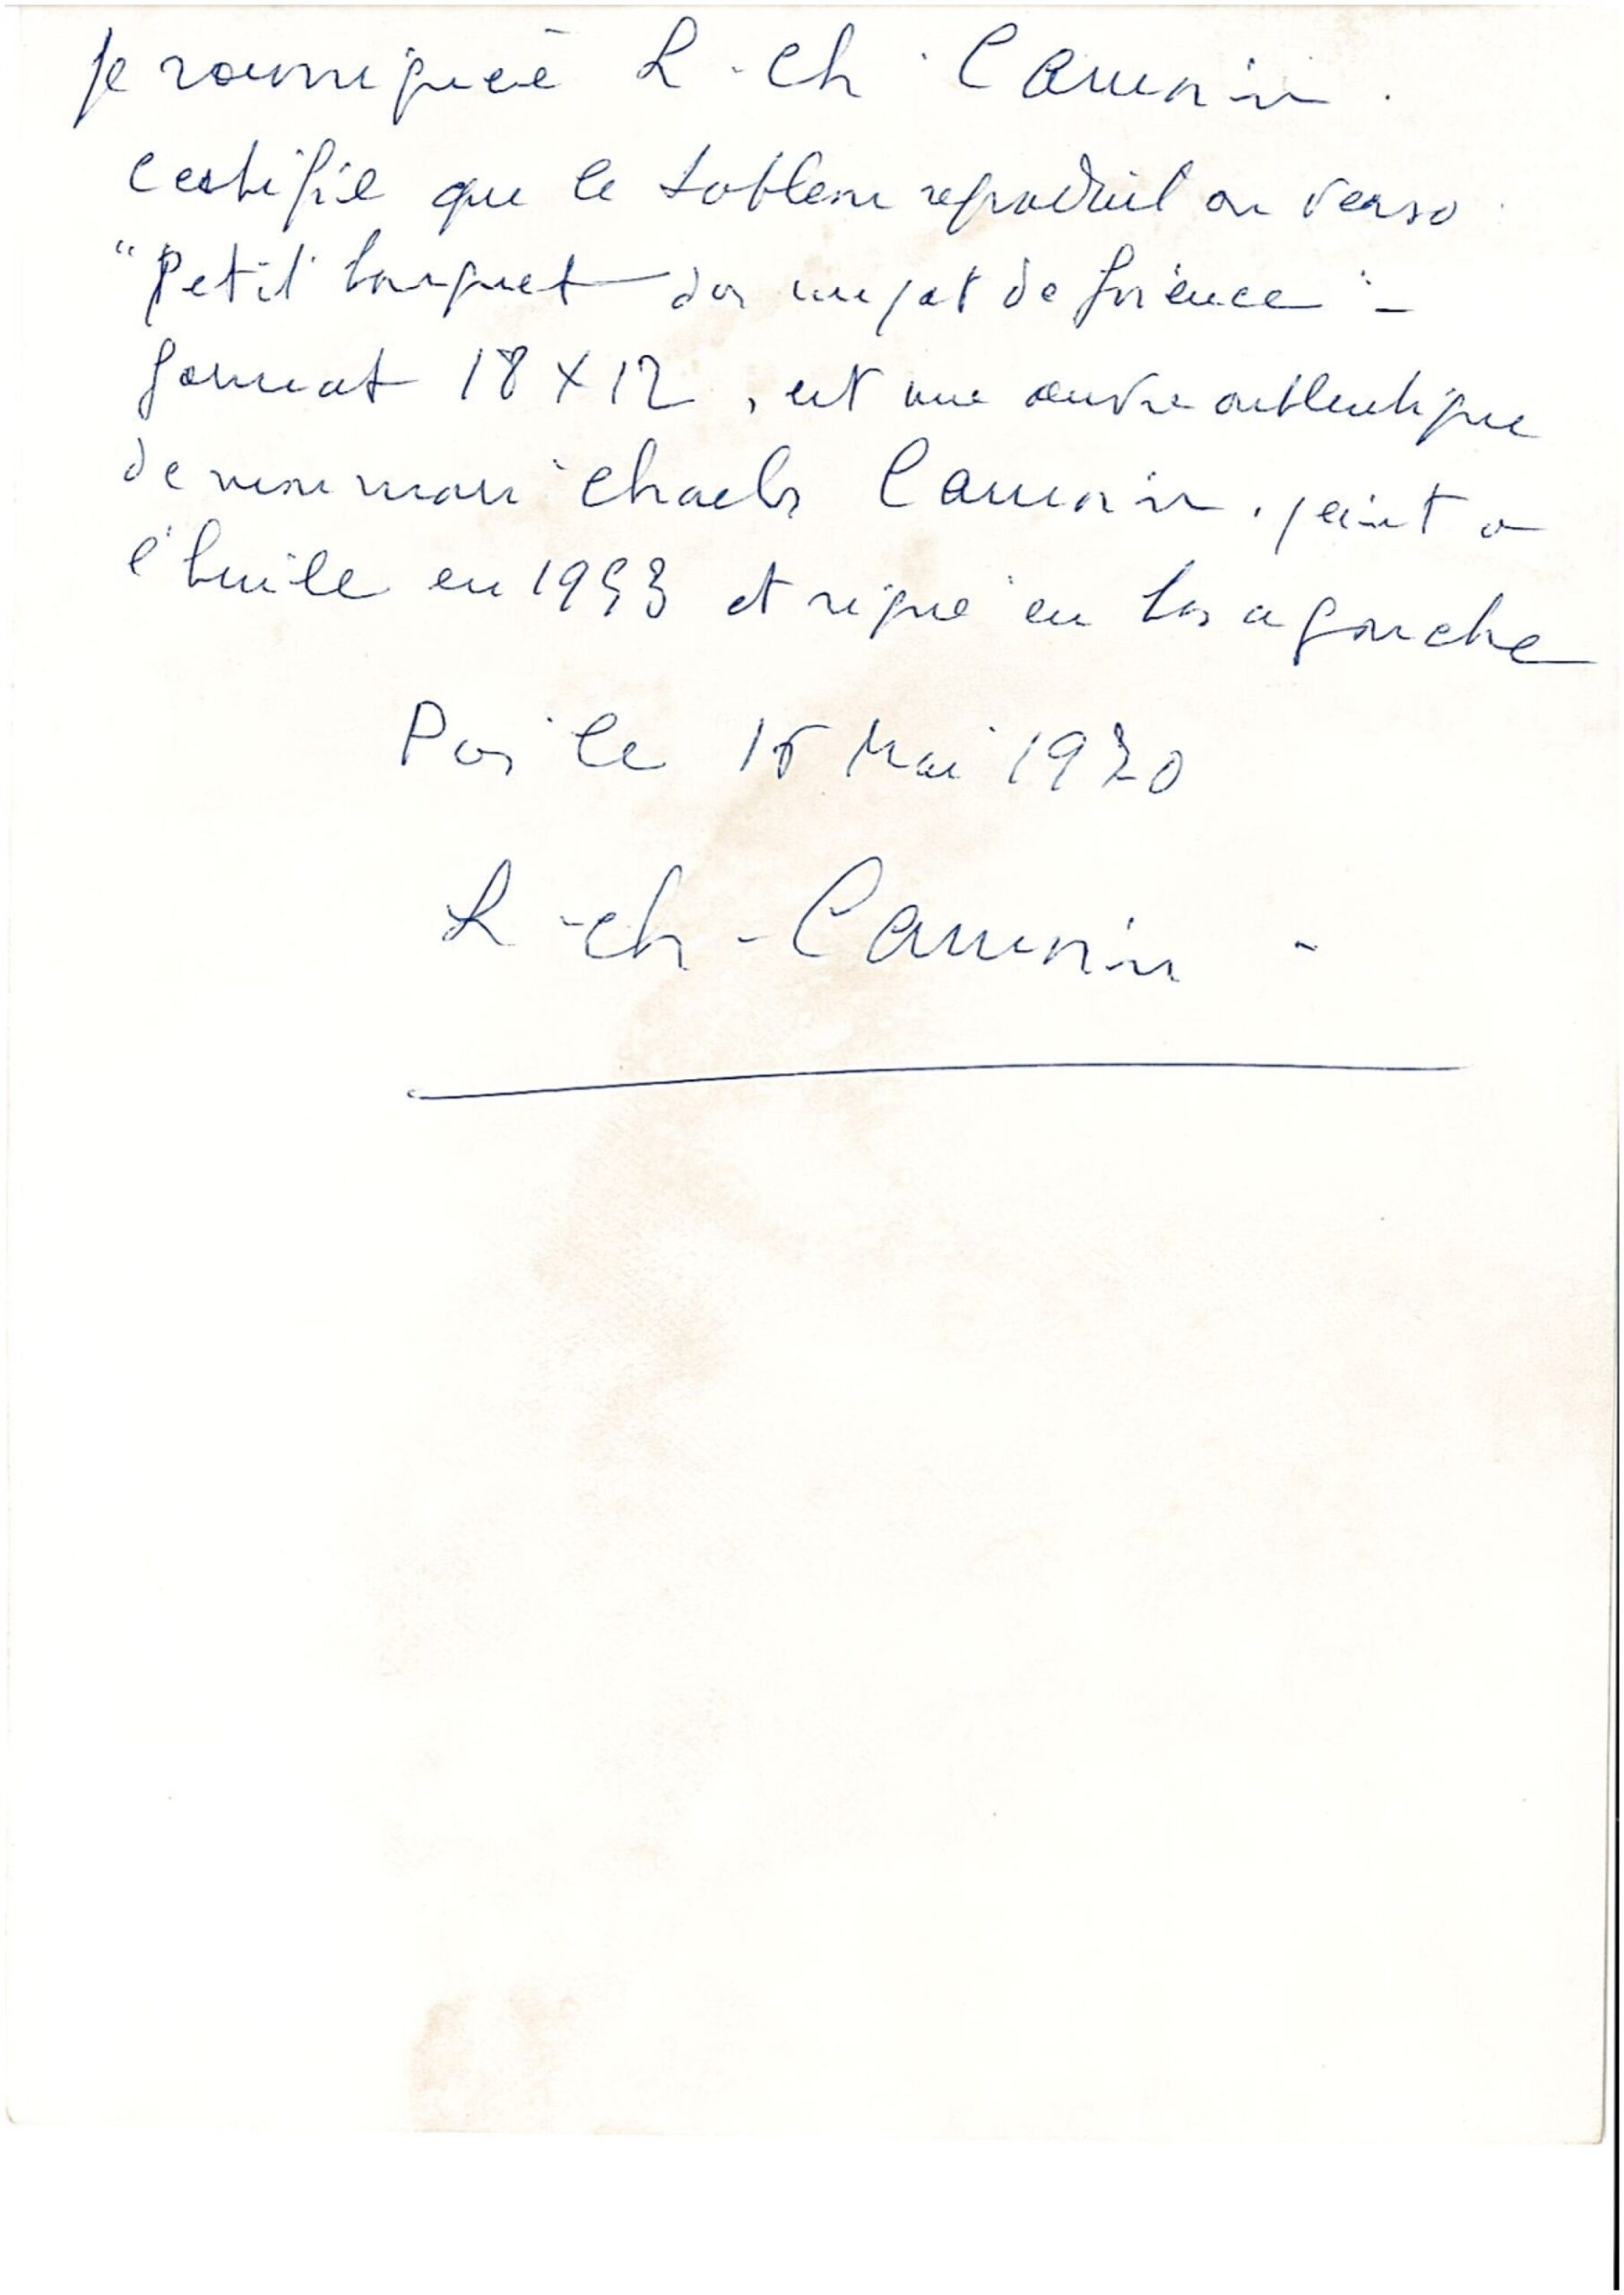 Je soussignée L. Ch. Camoin.
certifie que le tableau reproduit au verso
"Petit bouquet dans un pot de faïence" -
format 18 x 12, est une œuvre authentique
de mon mari Charles Camoin. peint a
l'huile en 1953 et signé en bas a gauche
Paris le 15 Mai 1970
L - Ch - Camoin -